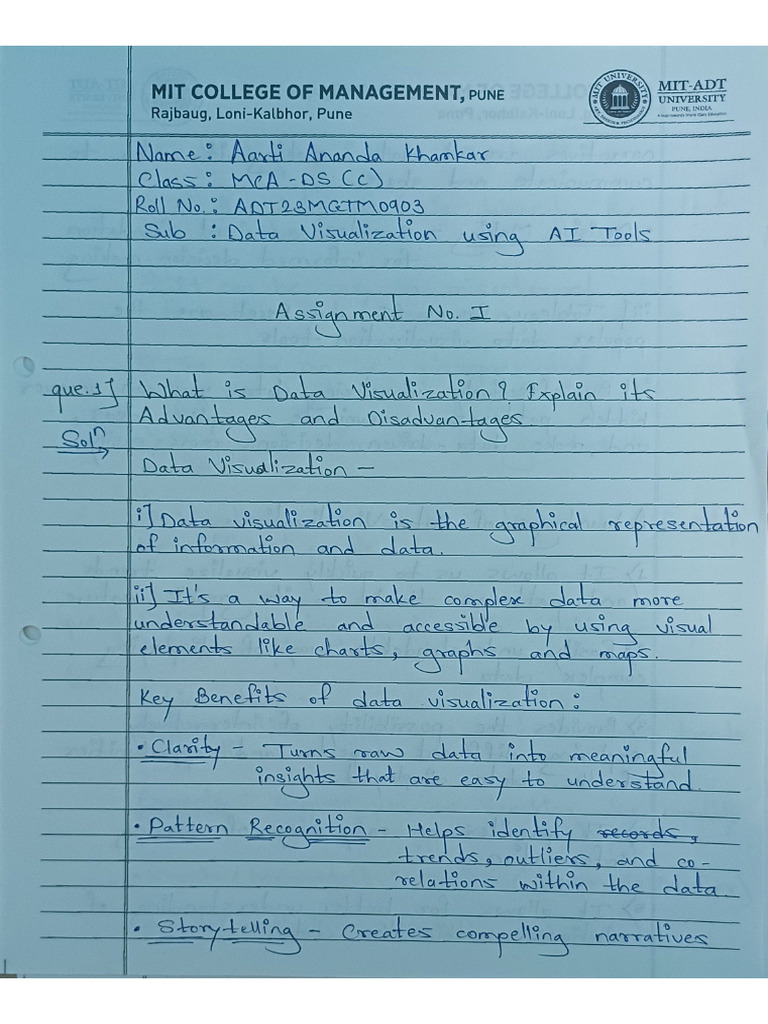 MIT COLLEGE OF MANAGEMENT, PUNE
Rajbaug, Loni-Kalbhor, Pune
MIT-ADT
UNIVERSITY
PUNE, INDIA
Name : Aarti Ananda Khamkar
Class : MCA-DS (C)
Roll No. : ADT23MGTM0903
Sub : Data Visualization using AI Tools
Assignment No. I
que.1] What is Data Visualization? Explain its
Advantages and Disadvantages.
Solⁿ
Data Visualization —
i] Data visualization is the graphical representation
of information and data.
ii] It's a way to make complex data more
understandable and accessible by using visual
elements like charts, graphs and maps.
Key Benefits of data visualization :
• Clarity - Turns raw data into meaningful
insights that are easy to understand.
• Pattern Recognition - Helps identify records,
trends, outliers, and co-
relations within the data
• Storytelling - Creates compelling narratives